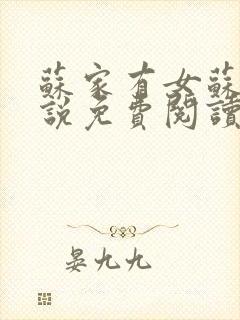 蘇家有女蘇
說免費閱讀
晏九九